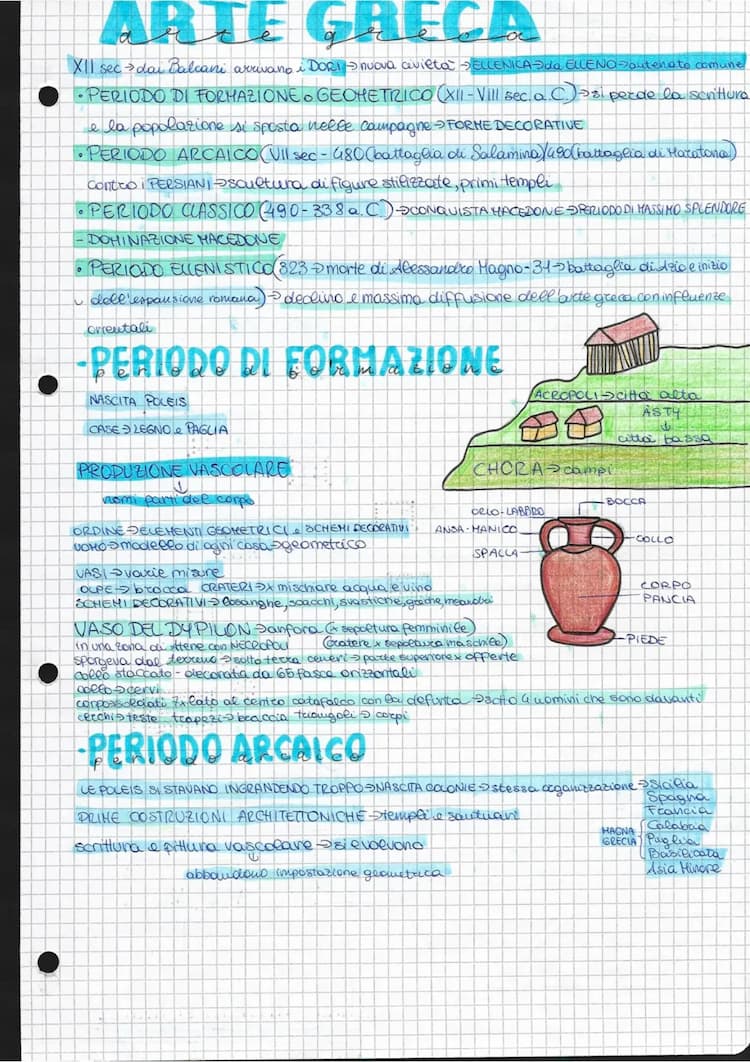 ARTE GRECA
arte greca
XII sec → dai Balcani arrivano i DORI → nuova civiltà → ELLENICA → da ELLENO → antenato comune
• PERIODO DI FORMAZIONE o GEOMETRICO (XII - VIII sec. a.C) → si perde la scrittura
e la popolazione si sposta nelle campagne → FORME DECORATIVE
• PERIODO ARCAICO (VII sec - 480 (battaglia di Salamina)/490 (battaglia di Maratona)
contro i PERSIANI → scultura di figure stilizzate, primi templi
• PERIODO CLASSICO (490 - 338 a.C) → CONQUISTA MACEDONE → PERIODO DI MASSIMO SPLENDORE
- DOMINAZIONE MACEDONE
• PERIODO ELLENISTICO (323 → morte di Alessandro Magno - 31 → battaglia di Azio e inizio
dell'espansione romana) → declino e massima diffusione dell'arte greca con influenze
orientali
- PERIODO DI FORMAZIONE
periodo di formazione
NASCITA POLEIS
CASE → LEGNO e PAGLIA
ACROPOLI → città alta
ÀSTY
↓
città bassa
CHORA → campi
PRODUZIONE VASCOLARE
↓
nomi parti del corpo
ORDINE → ELEMENTI GEOMETRICI e SCHEMI DECORATIVI
UOMO → modello di ogni cosa → geometrico
VASI → varie misure
OLPE → brocca CRATERI → x mischiare acqua e vino
SCHEMI DECORATIVI → losanghe, scacchi, svastiche, greche, meandri
ORLO-LABBRO
BOCCA
ANSA-MANICO
COLLO
SPALLA
CORPO
PANCIA
PIEDE
VASO DEL DYPILON → anfora (x sepoltura femminile)
in una zona di Atene con NECROPOLI (cratere x sepoltura maschile)
sporgeva dal terreno → sotto terra ceneri → parte superiore x offerte
collo staccato - decorata da 65 fasce orizzontali
collo → cervi
corpo → soldati 7 x lato al centro catafalco con la defunta → sotto 4 uomini che sono davanti
cerchi → teste trapezi → braccia triangoli → corpi
- PERIODO ARCAICO
periodo arcaico
LE POLEIS SI STAVANO INGRANDENDO TROPPO → NASCITA COLONIE → stessa organizzazione → Sicilia
Spagna
Francia
PRIME COSTRUZIONI ARCHITETTONICHE → templi e santuari
MAGNA GRECIA
Calabria
Puglia
Basilicata
Asia Minore
scrittura e pittura vascolare → si evolvono
↓
abbandono impostazione geometrica